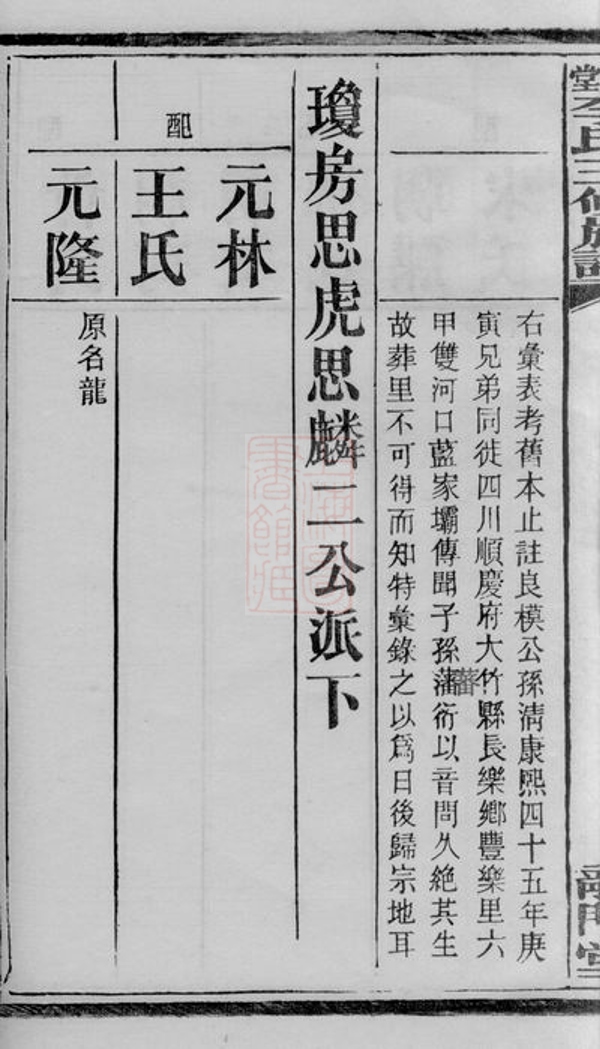 堂李氏三修族譜
龍門堂
右彙表考舊本止註良模公孫淸康熙四十五年庚
寅兄弟同徙四川順慶府大竹縣長樂鄉豐樂里六
甲雙河口藍家壩傳聞子孫藩衍以音問久絕其生
蕃
故葬里不可得而知特彙錄之以爲日後歸宗地耳
瓊房思虎思麟二公派下
元林
配
王氏
元隆
原名龍